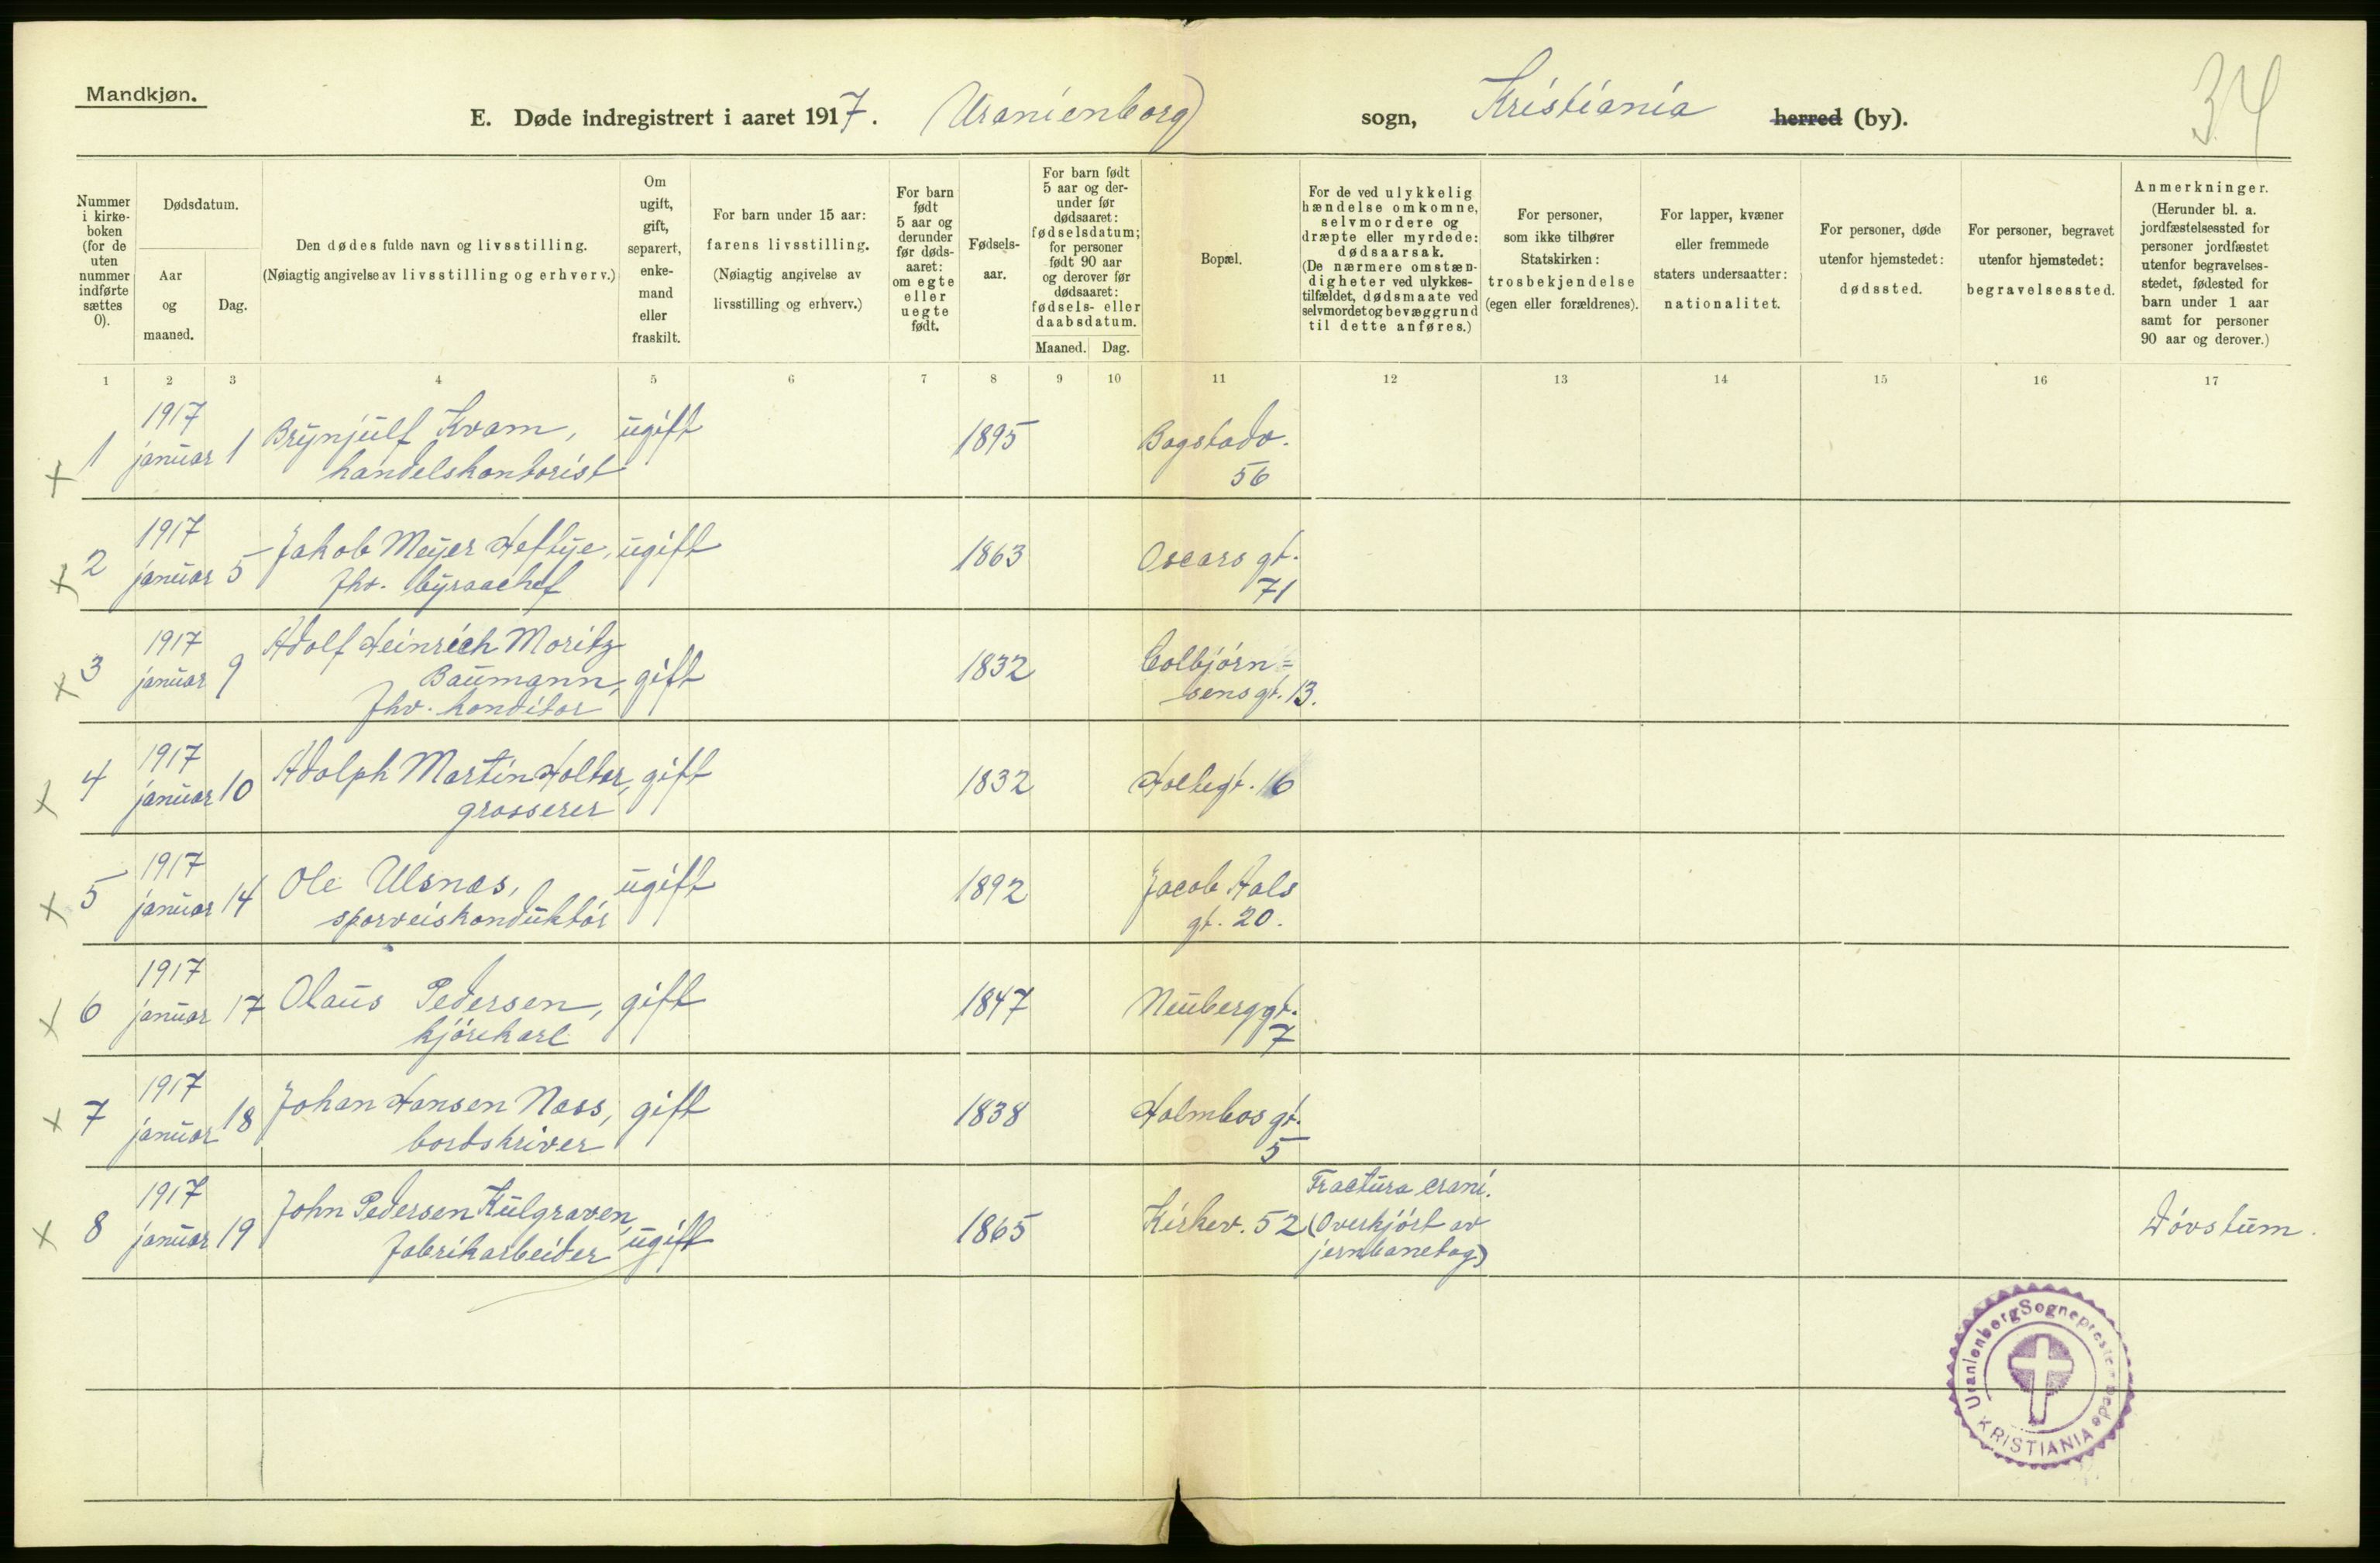 Mandkjøn.
34
E. Døde indregistrert i aaret 1917. (Uranienborg) sogn, Kristiania herred (by).
Nummer
i kirke-
boken
(for de
uten
nummer
indførte
sættes
0).
Dødsdatum.
Aar
og
maaned.
Dag.
Den dødes fulde navn og livsstilling.
(Nøiagtig angivelse av livsstilling og erhverv.)
Om
ugift,
gift,
separert,
enke-
mand
eller
fraskilt.
For barn under 15 aar:
farens livsstilling.
(Nøiagtig angivelse av
livsstilling og erhverv.)
For barn
født
5 aar og
derunder
før døds-
aaret:
om egte
eller
uegte
født.
Fødsels-
aar.
For barn født
5 aar og der-
under før
dødsaaret:
fødselsdatum;
for personer
født 90 aar
og derover før
dødsaaret:
fødsels- eller
daabsdatum.
Maaned.
Dag.
Bopæl.
For de ved ulykkelig
hændelse omkomne,
selvmordere og
dræpte eller myrdede:
dødsaarsak.
(De nærmere omstæn-
digheter ved ulykkes-
tilfældet, dødsmaate ved
selvmordet og bevæggrund
til dette anføres.)
For personer,
som ikke tilhører
Statskirken:
trosbekjendelse
(egen eller forældrenes).
For lapper, kvæner
eller fremmede
staters undersaatter:
nationalitet.
For personer, døde
utenfor hjemstedet:
dødssted.
For personer, begravet
utenfor hjemstedet:
begravelsessted.
Anmerkninger.
(Herunder bl. a.
jordfæstelsessted for
personer jordfæstet
utenfor begravelses-
stedet, fødested for
barn under 1 aar
samt for personer
90 aar og derover.)
1 2 3 4 5 6 7 8 9 10 11 12 13 14 15 16 17
1917
1 januar 1 Brynjulf Kvam, ugift 1895 Bogstadv.
handelskontorist 56
1917
2 januar 5 Jakob Meyer Heftye, ugift 1863 Oscars gt.
fhv. byraachef 71
1917
3 januar 9 Adolf Heinrich Moritz
Baumann, gift 1832 Colbjørn=
fhv. konditor sens gt. 13.
1917
4 januar 10 Adolph Martin Holter, gift 1832 Holtegt. 16
grosserer
1917
5 januar 14 Ole Ulsnes, ugift 1892 Jacob Hals
sporveiskonduktør gt. 20.
1917
6 januar 17 Olaus Pedersen, gift 1847 Neuberggt.
kjørekarl 7
1917
7 januar 18 Johan Hansen Næss, gift 1838 Holmbos gt.
bordskriver 5
1917
8 januar 19 John Pedersen Kulgraven, ugift 1865 Kirkev. 52
fabrikarbeider
Fractura crani.
(Overkjørt av
jernbanetog)
Døvstum.
Uranienborg Sogneprestembede
KRISTIANIA